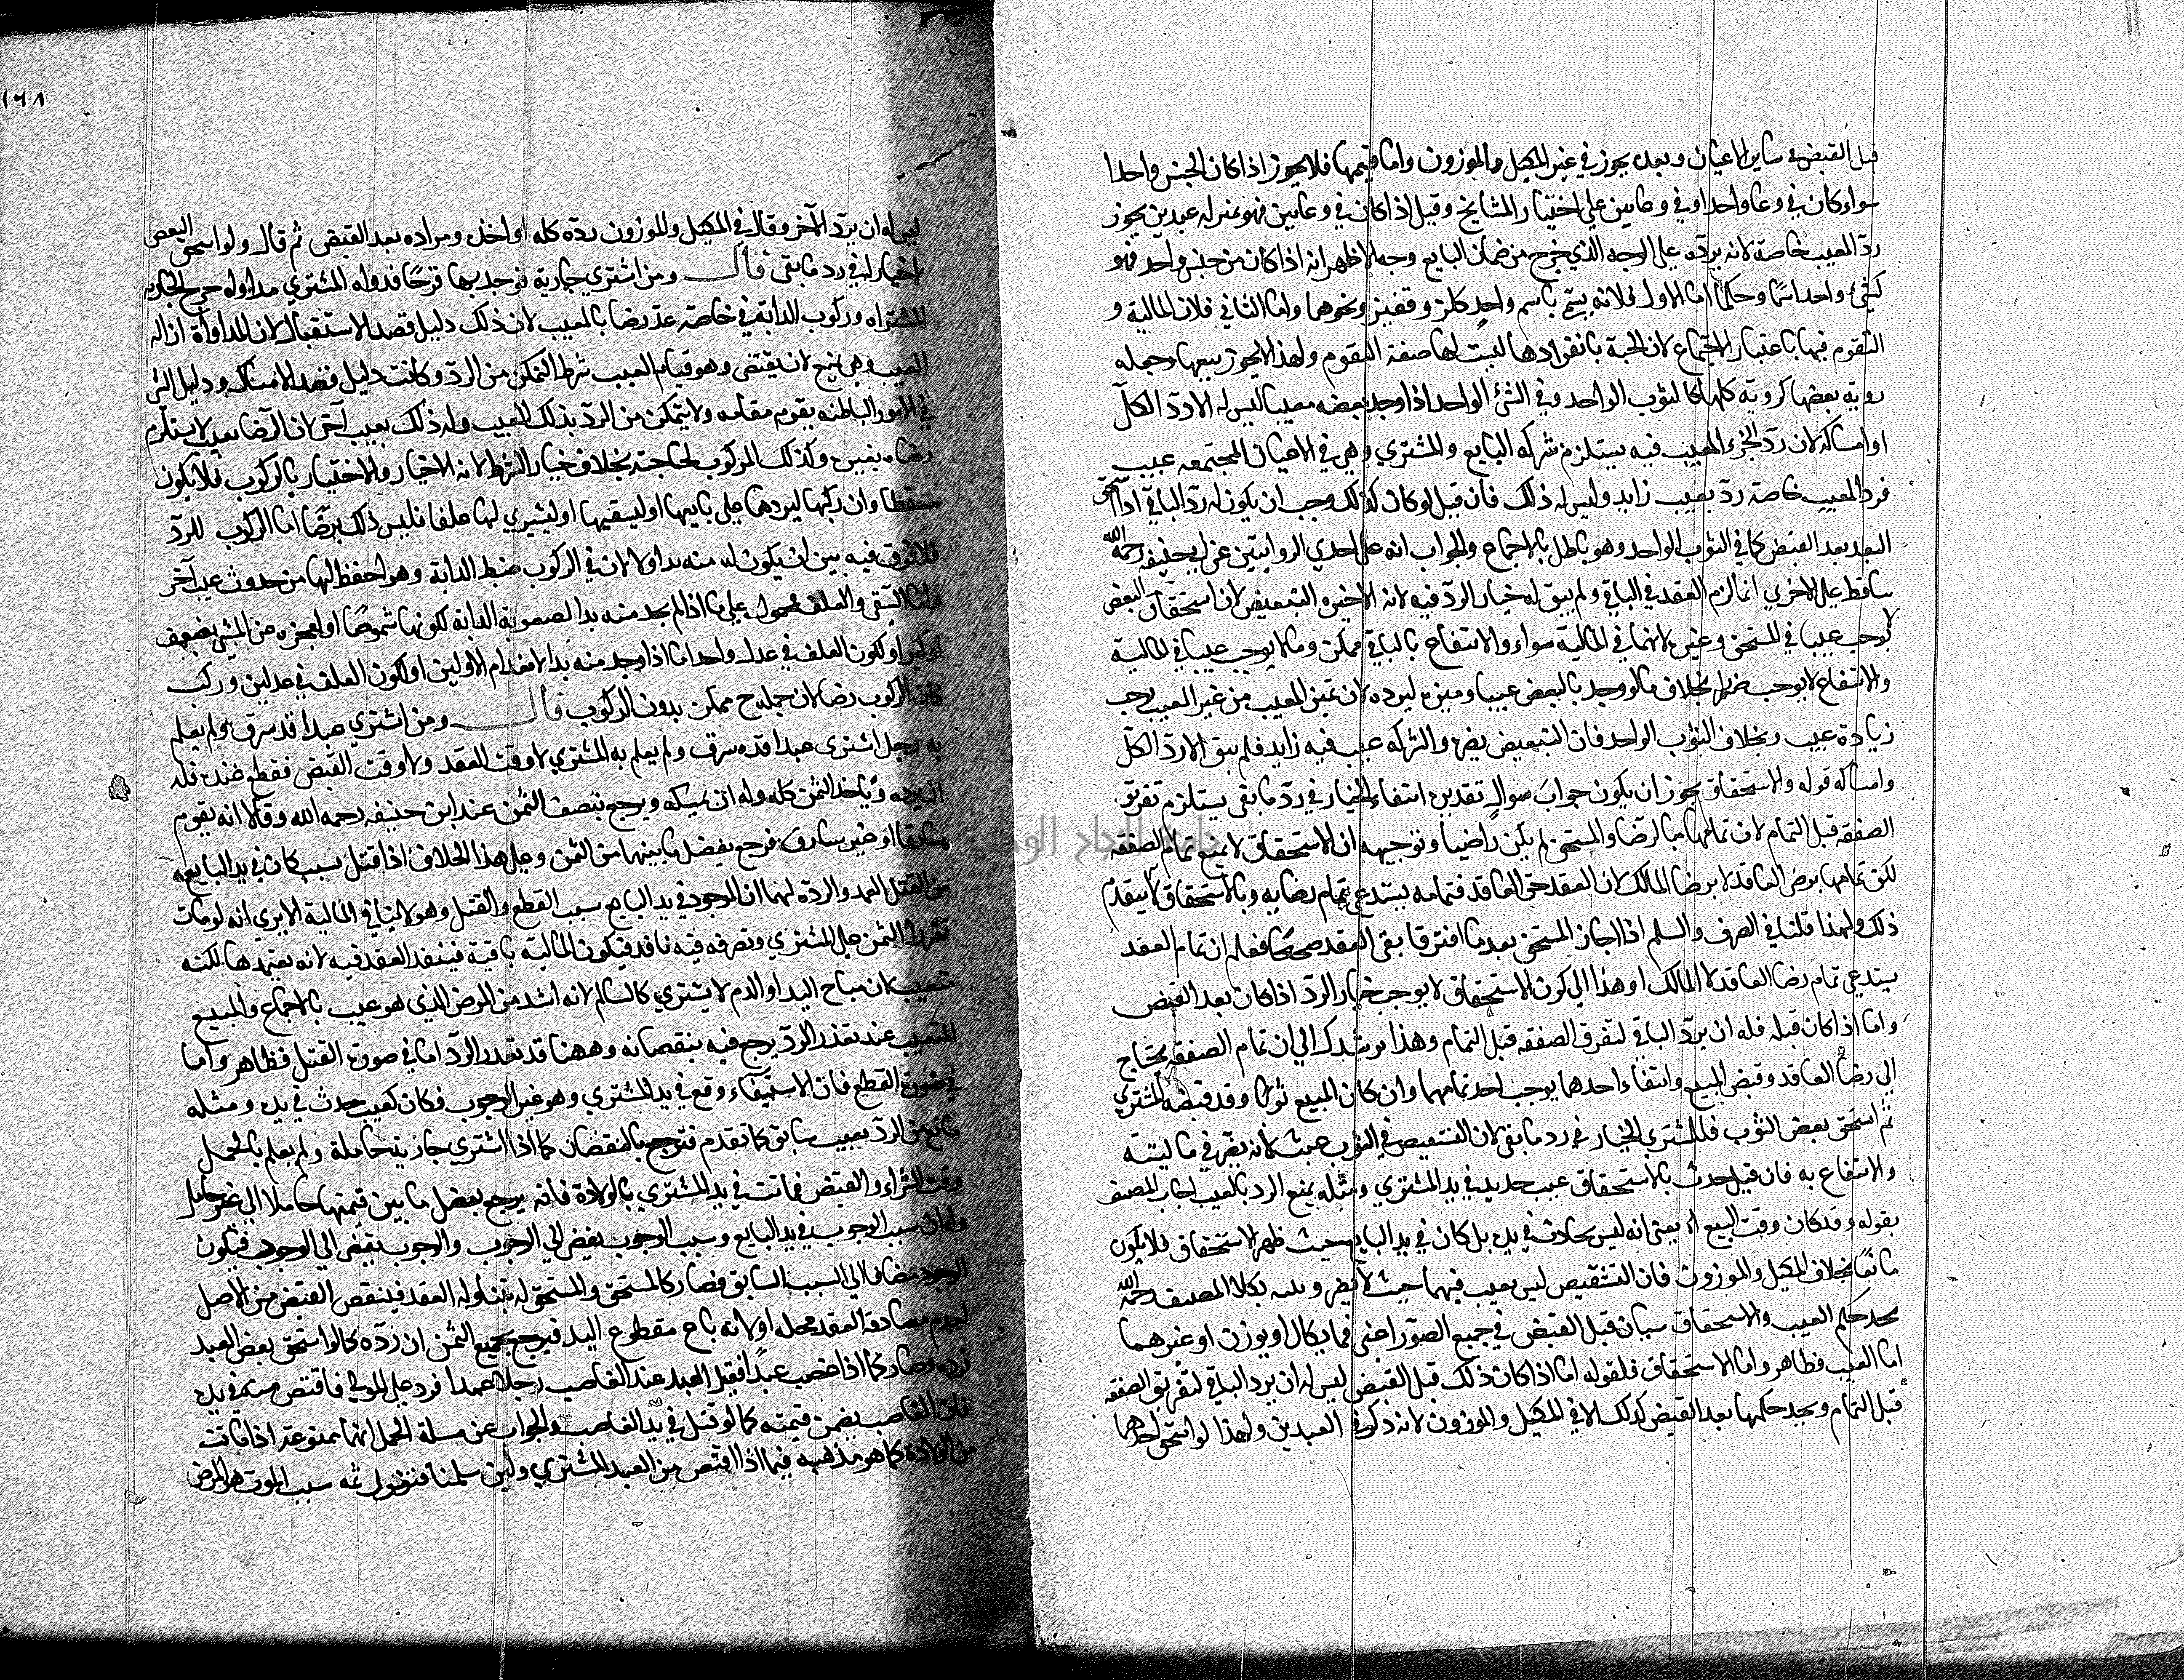 قبل القبض في ساير الاعيان وبعده يجوز في غير المكيل والموزون واما فيهما فلا يجوز اذا كان الجنس واحدا
سواء كان في وعاء واحد او في وعايين على اختيار المشايخ وقيل اذا كان في وعايين فهو بمنزلة عبدين يجوز
ردّ المعيب خاصة لانه يردّه على الوجه الذي خرج من ضمان البايع وجه الاظهر انه اذا كان من جنس واحد فهو
كشئ واحد اسمًا وحكمًا اما الاول فلانه يسمّى باسم واحدٍ ككرّ وقفيز ونحوها واما الثاني فلان المالية و
التقوم فيها باعتبار الاجتماع لان الحبة بانفرادها ليست لها صفة التقوم ولهذا لا يجوز بيعها وجعله
روية بعضها كروية كلها كالثوب الواحد وفي الشئ الواحد اذا وجد بعضه معيبا ليس له الا ردّ الكلّ
او امساكه لان ردّ الجزء المعيب فيه يستلزم شركة البايع والمشتري وهي في الاعيان المجتمعه عيب
فرد المعيب خاصة ردّ بعيب زايد وليس له ذلك فان قيل لو كان كذلك وجب ان يكون له ردّ الباقي اذا استحق
البعد بعد القبض كما في الثوب الواحد وهو باطل بالاجماع والجواب انه على احدي الروايتين عن ابي حنيفه رحمه الله
ساقط على الاخري انما لزم العقد في الباقي ولم يبق له خيار الردّ فيه لانه لاخيره التبعيض لان استحقاق البعض
لا يوجب عيبا في المستحق وغيره لانهما في المالية سواء والانتفاع بالباقي ممكن وما لا يوجب عيبا في المالية
والانتفاع لا يوجب ضررا بخلاف ما لو وجد بالبعض عيبا وميزه ليرده لان تميز المعيب من غير المعيب يوجب
زيادة عيب وبخلاف الثوب الواحد فان التبعيض يضره والشركه عيب فيه زايد فلم يبق الا ردّ الكلّ
وامساكه قوله والاستحقاق يجوز ان يكون جوابَ سوالٍ تقديره انتفاء الخيار في ردّ ما بقي يستلزم تفريق
الصفقه قبل التمام لان تمامها بالرضا والمستحق لم يكن راضيا وتوجيهه ان الاستحقاق لا يمنع تمام الصفقه
لكن تمامها برضى العاقد لا برضا المالك لان العقد حق العاقد فتمامه يستدعي تمام رضايه وبالاستحقاق لا ينعدم
ذلك ولهذا قلنا في الصرف والسلم اذا اجاز المستحق بعد ما افترقا بقي العقد صحيحًا فعلم ان تمام العقد
يستدعي تمام رضا العاقد لا المالك او هذا الي كون الاستحقاق لا يوجب خيار الردّ اذا كان بعد القبض
واما اذا كان قبله فله ان يردّ الباقي لتفرق الصفقه قبل التمام وهذا يرشدك الي ان تمام الصفقه يحتاج
الي رضا العاقد وقبض المبيع وانتفاء احدهما يوجب احد تمامهما وان كان المبيع ثوبا وقد قبضه المشتري
ثم استحق بعض الثوب فللمشتري الخيار في رد ما بقي لان التبعيض في الثوب عيب لانه يضرّ في ماليته
والانتفاع به فان قيل حدث بالاستحقاق عيب جديد في يد المشتري ومثله يمنع الرد بالعيب اجاب المصنف
بقوله وقد كان وقت البيع اه يعني انه ليس بحادث في يده بل كان في يد البايع حيث ظهر الاستحقاق فلا يكون
مانعًا بخلاف المكيل والموزون فان التشقيص ليس بعيب فيهما حيث لا يضر بكلام المصنف رحمه الله
يجد حكم العيب والاستحقاق سيان قبل القبض في جميع الصوّر اعني فيما يكال او يوزن او غيرهما
اما العيب فظاهر واما الاستحقاق فلقوله اما اذا كان ذلك قبل القبض ليس له ان يرد الباقي لتفريق الصفقه
قبل التمام ويجد حكمها بعد القبض كذلك الا في المكيل والموزون لانه ذكر في العبدين ولهذا لو استحق احدهما
١٦٨
ليس له ان يردّ الآخر وقال في المكيل والموزون ردّه كله او اخذه ومراده بعد القبض ثم قال ولو استحق البعض
لا خيار له في رد ما بقي قال ومن اشتري جارية فوجد بها قرحًا فداواه المشتري مداواة جرح الجاريه
المشتراه وركوب الدابة في حاجته عدّ رضا بالعيب لان ذلك دليل قصد الاستقبال لان المداواة ازاله
العيب وهي تمنع لانه يقتضي وهو قيام العيب شرط التمكن من الردّ وكانت دليل قصد الامساك ودليل الشئ
في الامور الباطنه يقوم مقامه ولا يتمكن من الردّ بذلك العيب وله ذلك بعيب آخر لان الرضا بعيب لا يستلزم
رضاه بغيره وكذلك الركوب لحاجته بخلاف خيار الشرط لانه الاختيار والاختيار بالركوب فلا يكون
مسقطا وان ركبها ليردها على بايعها او ليسقيها او ليشتري لها علفا فليس ذلك برضًا اما الركوب للردّ
فلا فرق فيه بين ان يكون له منه بد اولا لان في الركوب ضبط الدابة وهو احفظ لها من حدوث عيب آخر
واما السّقي والعلف فمحمول على ما اذا لم يجد منه بدا لصعوبة الدابة لكونها شموصًا او لعجزه عن المشي بضعف
او كبر او لكون العلف في عدل واحد اما اذا وجد منه بدا لانعدام الاولين او لكون العلف في عدلين وركب
كان الركوب رضا لان حمله ح ممكن بدون الركوب قال ومن اشتري عبدا قد سرق ولم يعلم
به رجل اشترى عبدا قد سرق ولم يعلم به المشتري لا وقت العقد ولا وقت القبض فقطع عنده فله
ان يرده وياخذ الثمن كله وله ان يمسكه ويرجع بنصف الثمن عند ابن حنيفه رحمه الله وقالا انه يقوم
سارقا او غير سارق فرجع بفضل ما بينهما من الثمن وعلى هذا الخلاف اذا قتل بسبب كان في يد البايع
من القتل العمد والردّة لهما ان الموجود في يد البايع سبب القطع والقتل وهو لا ينافي المالية الا يري انه لو مات
تقرر الثمن على المشتري وتصرفه فيه نافذ فيكون المالية باقية فينفذ العقد فيه لانه يعتمدها لكنه
متعيب لان مباح اليد او الدم لا يشتري كالسالم لانه اشد من المرض الذي هو عيب بالاجماع والمبيع
المتعيب عند تعذر الردّ يرجع فيه بنقصانه وههنا قد تعذر الردّ اما في صورة القتل فظاهر واما
في صورة القطع فان الاستيفاء وقع في يد المشتري وهو غير الوجوب فكان كعيب حدث في يده ومثله
مانع من الردّ بعيب سابق كما تقدم فترجع بالنقصان كما اذا اشتري جارية حاملة ولم يعلم بالحمل
وقت الشراء والقبض فماتت في يد المشتري بالولادة فانه يرجع بفضل ما بين قيمتها حاملا الي غير حامل
وله ان سبب الوجوب في يد البايع وسبب الوجوب يفضي الي الوجوب والوجوب يفضي الي الوجود فيكون
الوجود مضافا الي السبب السابق فصار كالمستحق والمستحق له يتناوله العقد فينتقض القبض من الاصل
لعدم مصادفة العقد محله او لانه باع مقطوع اليد فيرجع بجميع الثمن ان ردّه كما لو استحق بعض العبد
فرده وصار كما اذا غصب عبدًا فقتل العبد عند الغاصب رجلا عمدا فرد على المولي فاقتص منه في يده
فان الغاصب يضمن قيمته كما لو قتل في يد الغاصب والجواب عن مسلة الحمل انها ممنوعة اذا ماتت
من الولادة كما هو مذهبه فيما اذا اقتص من العبد المشتري ولئن سلمنا فنقول ثمه سبب الموت هو المرض